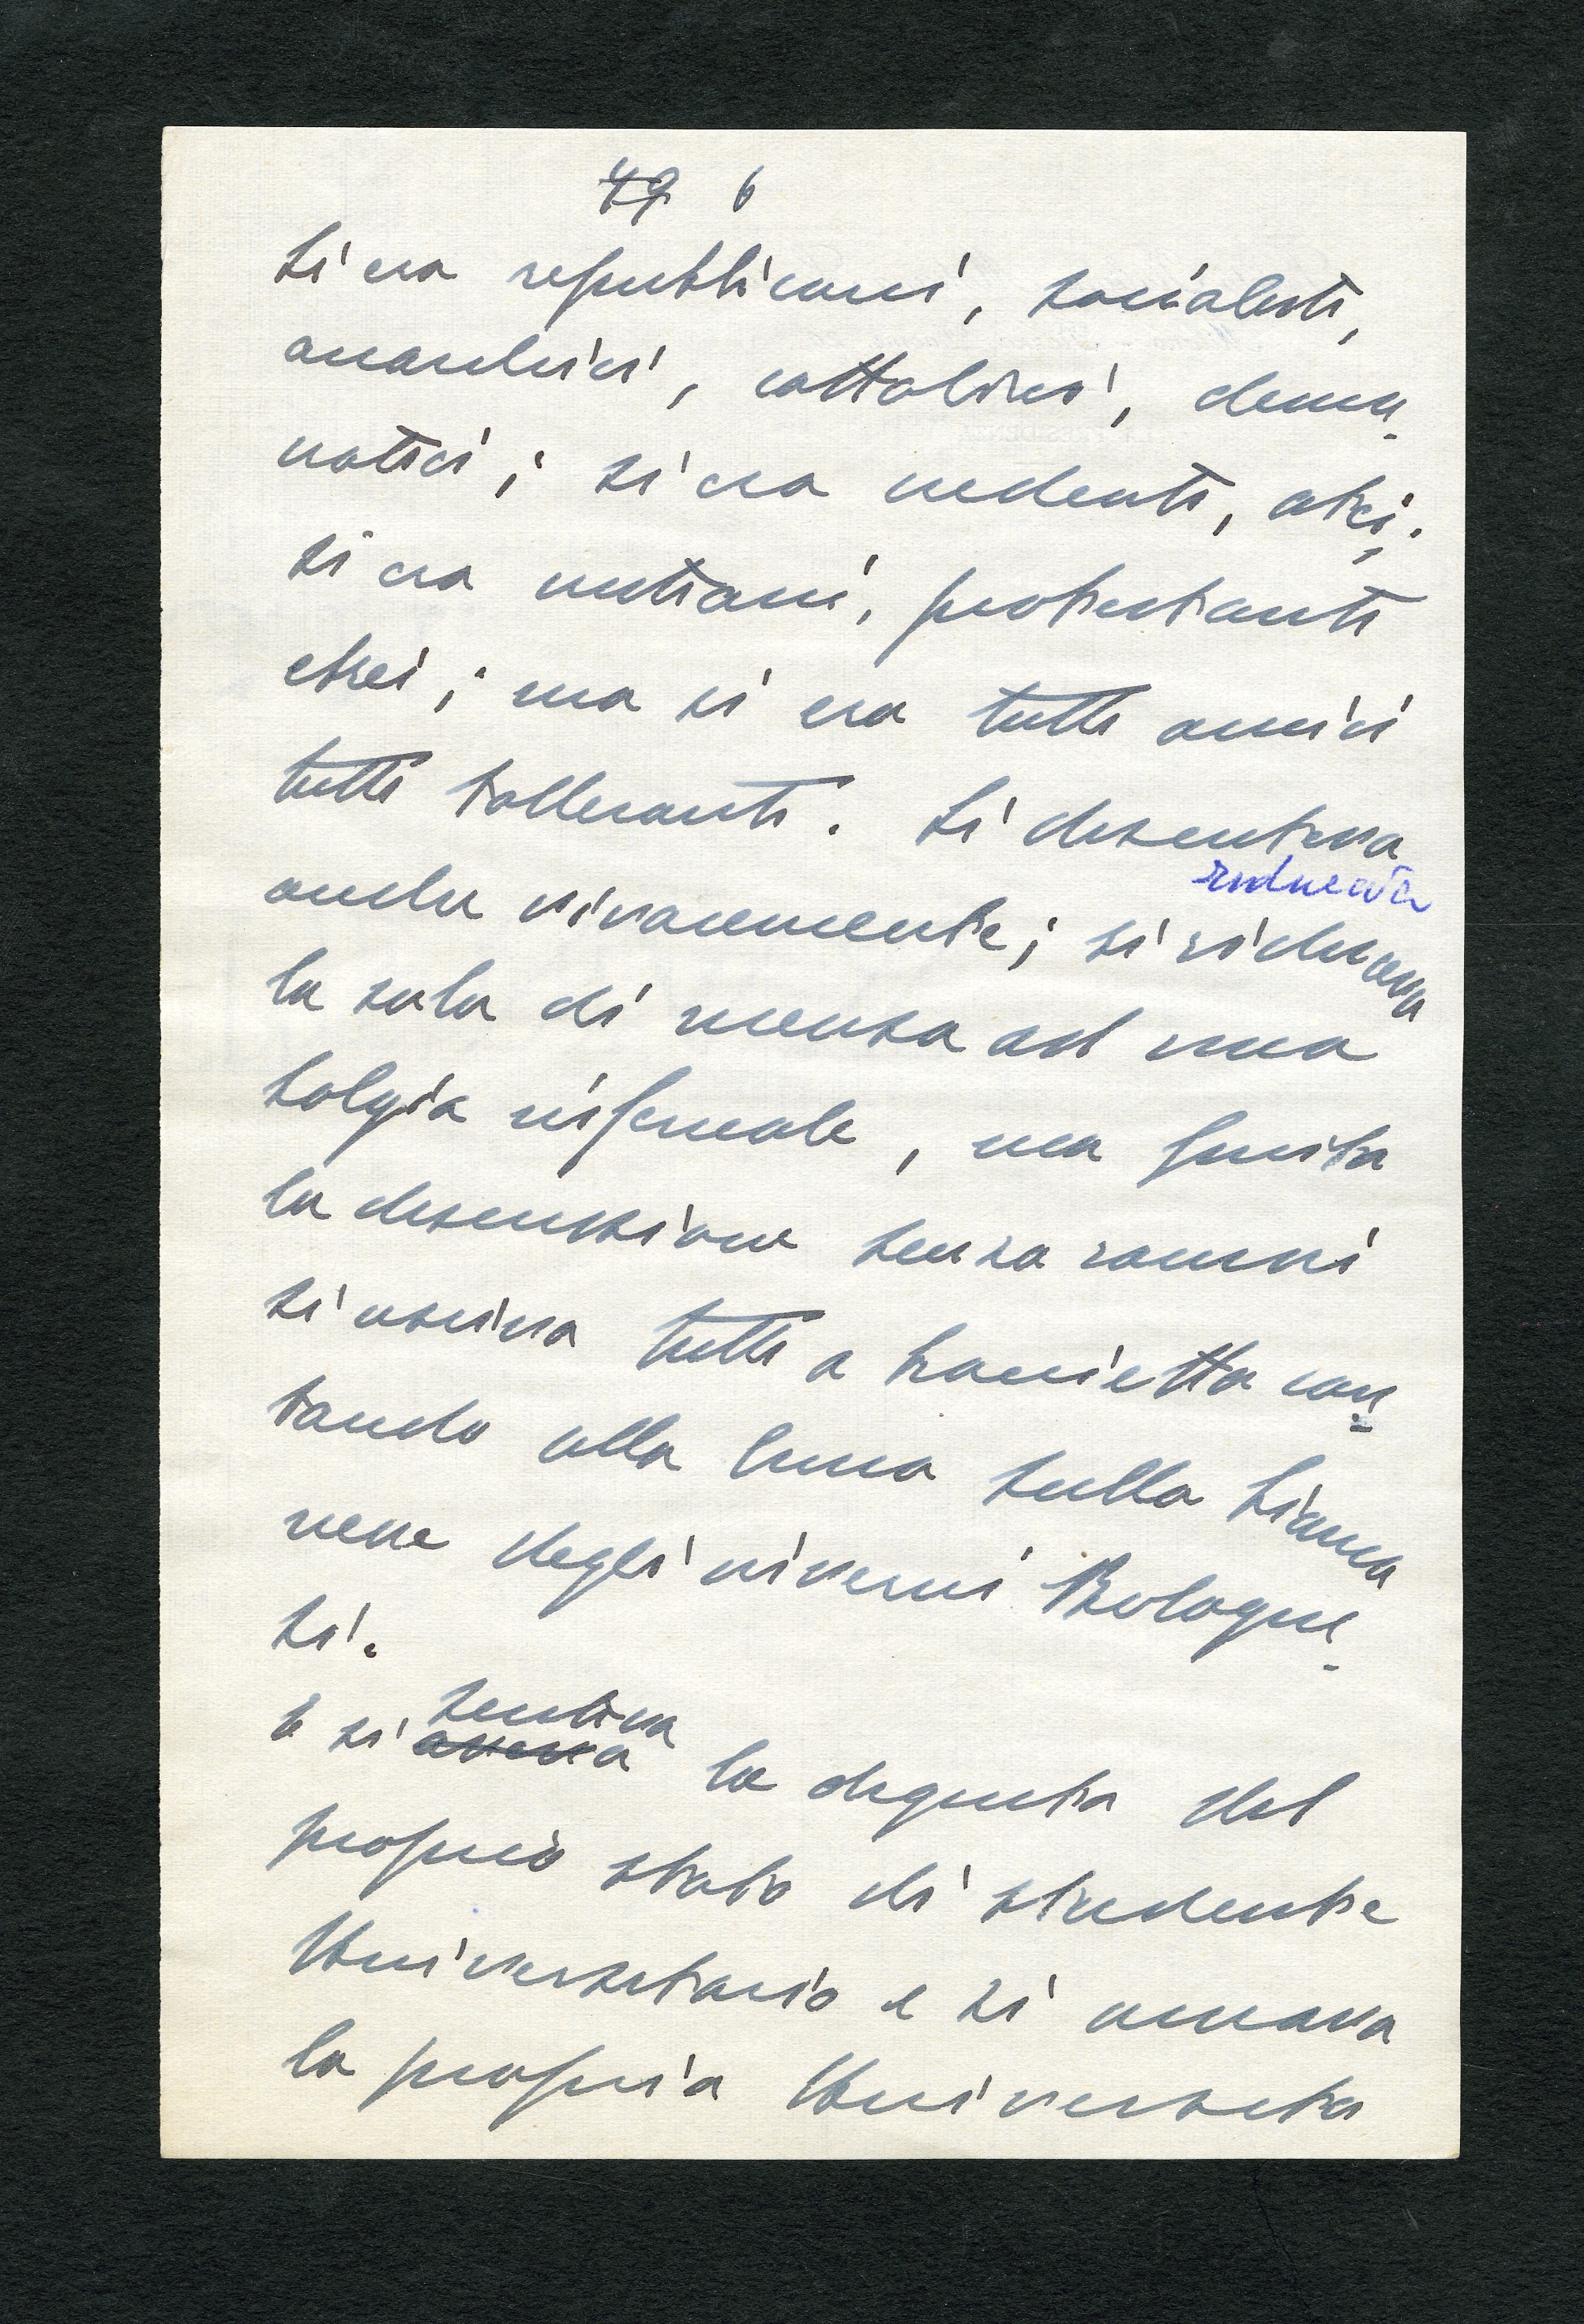 49 6
Si era republicani, socialisti,
anarchici, cattolici, demo-
cratici; si era credenti, atei;
si era cristiani, protestanti
ebrei; ma si era tutti amici
tutti tolleranti. Si discuteva
riduceva
anche vivacemente; si riduceva
la sala di mensa ad una
bolgia infernale, ma finita
la discussione senza rancori
si usciva tutti a braccietto can=
tando alla luna sulla bianca
neve degli inverni Bologne-
si.
sentiva
E si aveva la dignita del
proprio stato di studente
Universitario e si amava
la propria Universita